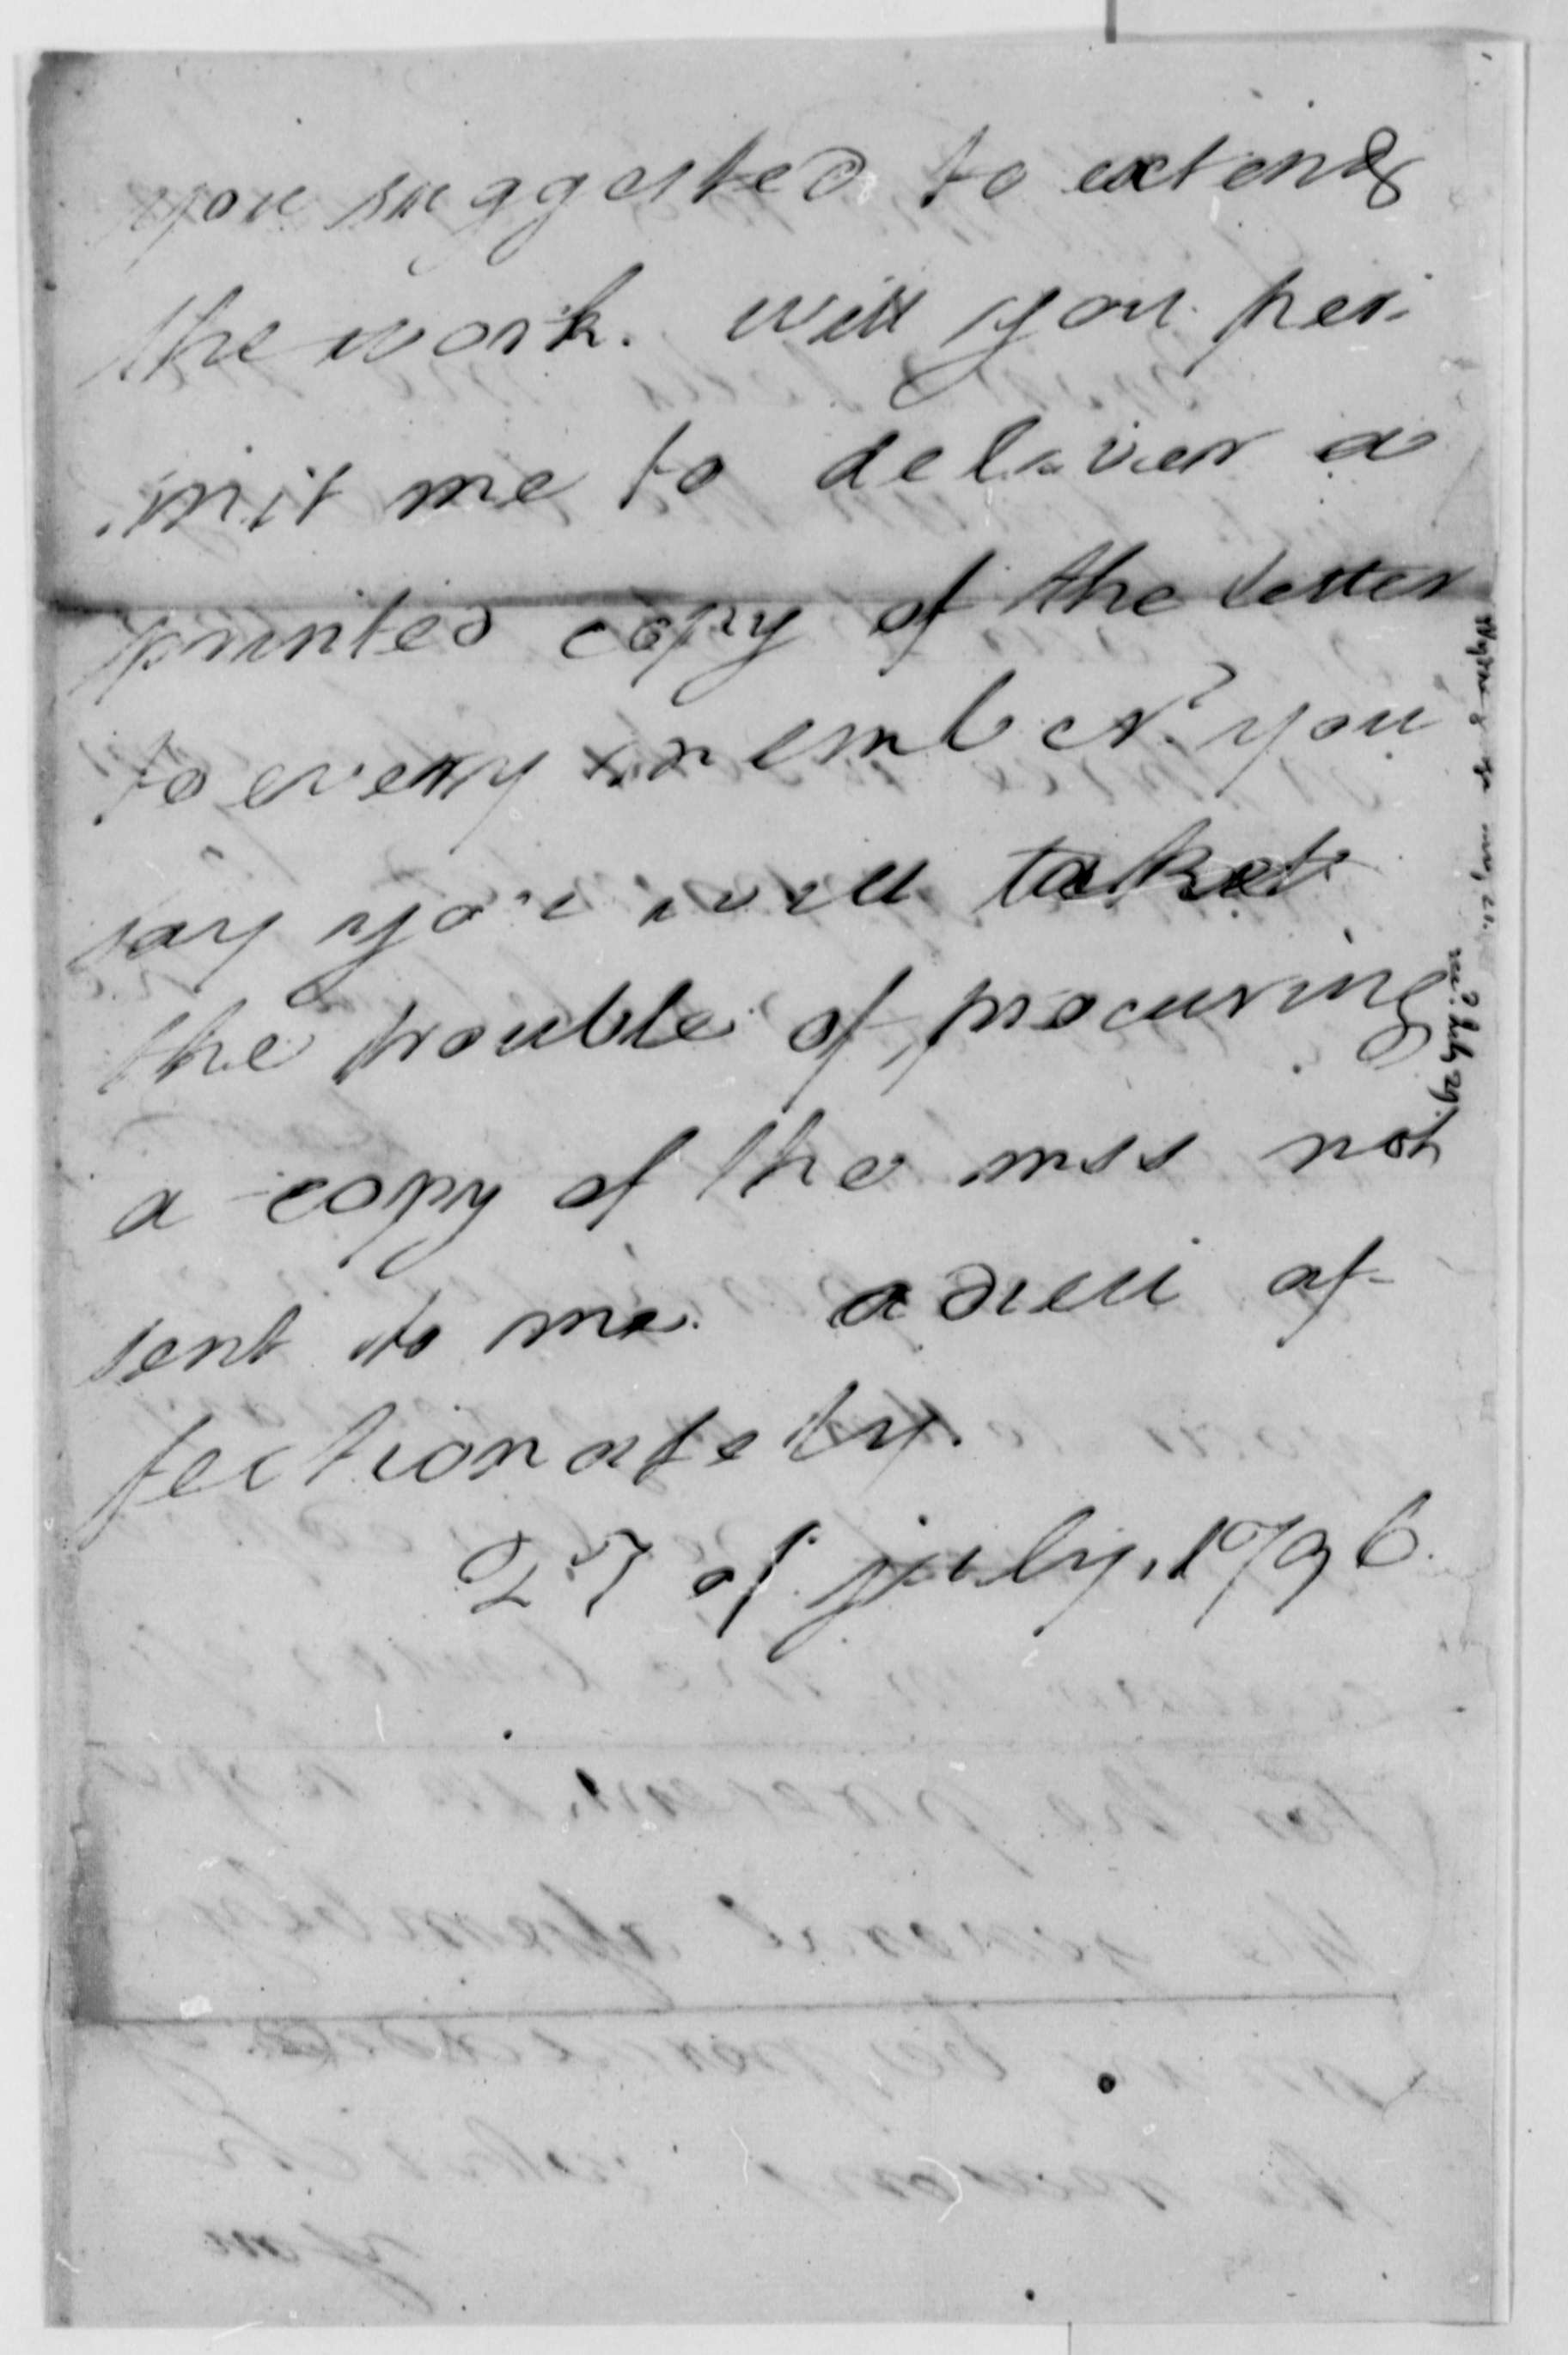 you suggested to extend
the work. will you per-
mit me to deliver a
printed copy of the letter
to every member? you
say you will take
the trouble of procuring
a copy of the mss not
sent to me. adieu af-
fectionately.
27 of july, 1796.
recd. July 29.